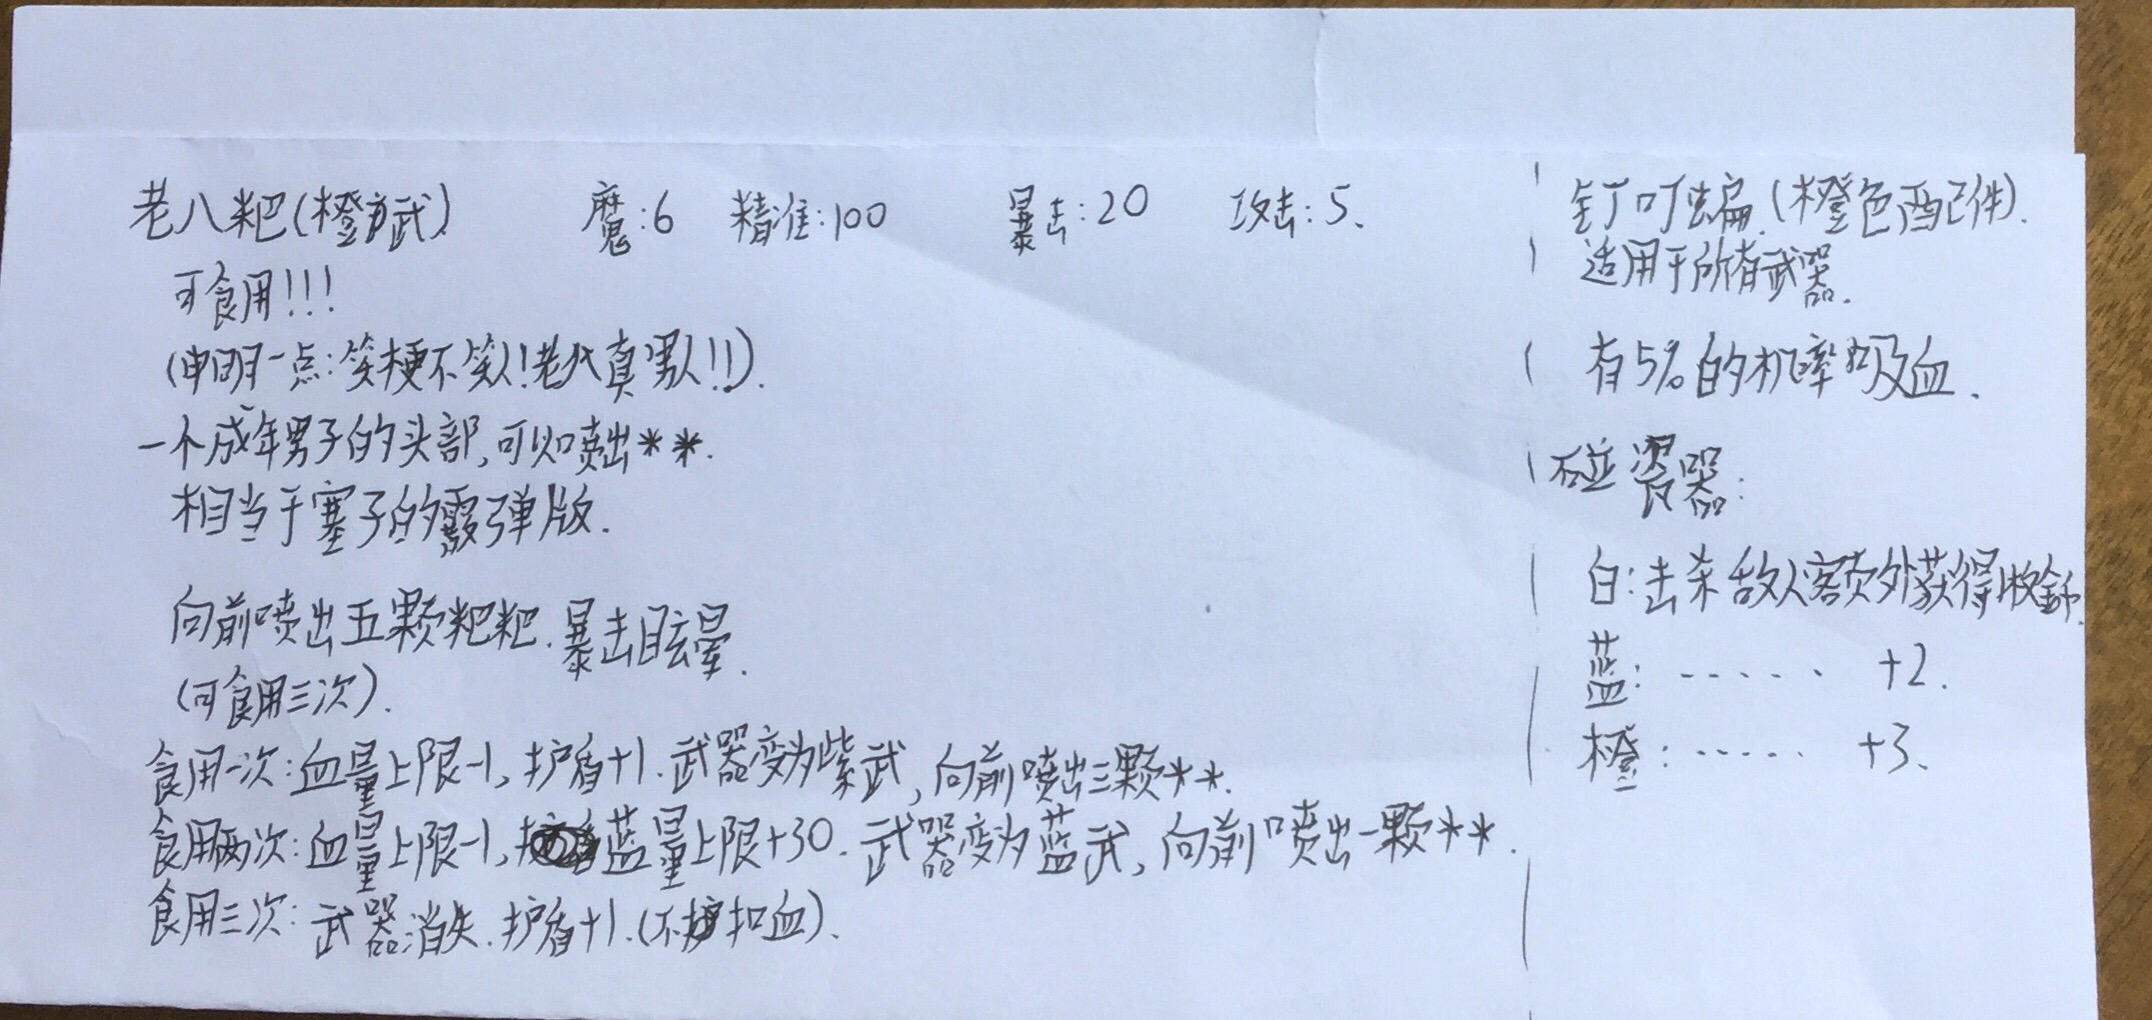 老八粑(橙武) 魔:6 精准:100 暴击:20 攻击:5、
可食用!!!
(申明一点:笑梗不笑人!老八真男人!!).
一个成年男子的头部,可以喷出**.
相当于塞子的霰弹版.
向前喷出五颗粑粑.暴击眩晕.
(可食用三次).
食用一次:血量上限-1,护盾+1.武器变为紫武,向前喷出三颗**.
食用两次:血量上限-1,蓝量上限+30.武器变为蓝武,向前喷出一颗**.
食用三次:武器消失.护盾+1.(不扣血).
钉叮蝙.(橙色配件).
适用于所有武器.
有5%的机率吸血.
碰瓷器:
白:击杀敌人额外获得1枚金币.
蓝:..... +2.
橙:..... +3、